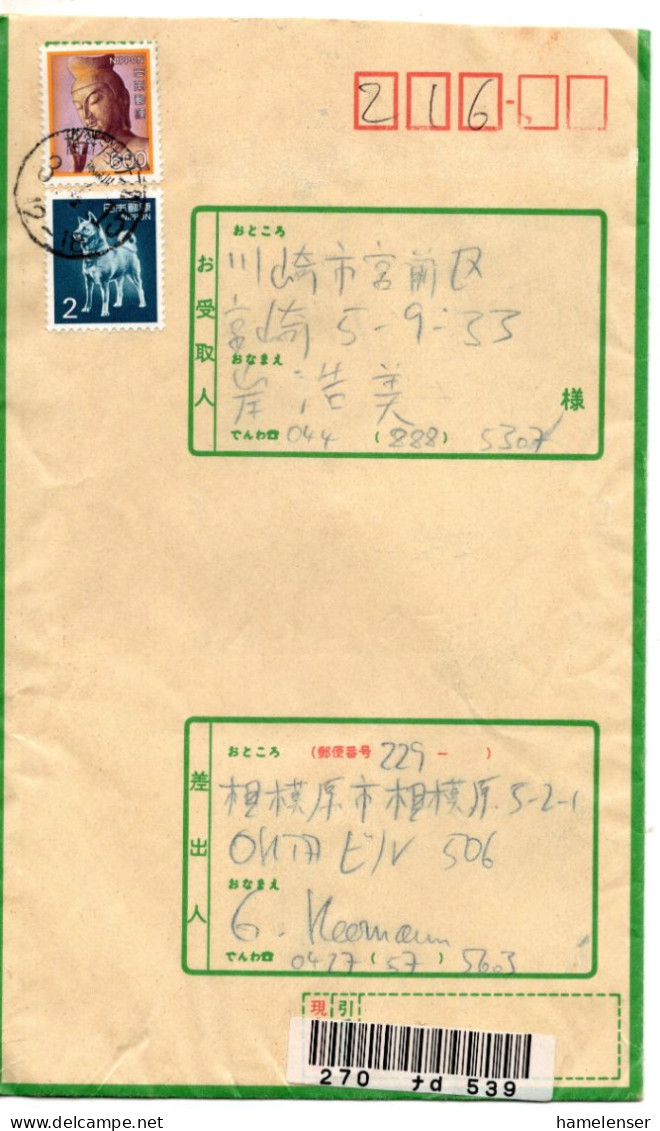 NIPPON
日本郵便
日本郵便
NIPPON
2
216-
お受取人
おところ
川崎市宮前区
宮崎 5-9-33
おなまえ
岸 浩美
様
でんわ 044 (888) 5307
差出人
おところ (郵便番号 229 - )
相模原市相模原 5-2-1
ビル 506
おなまえ
G.
でんわ 0427 (57) 5603
現 引
270 ナd 539
hamelenser